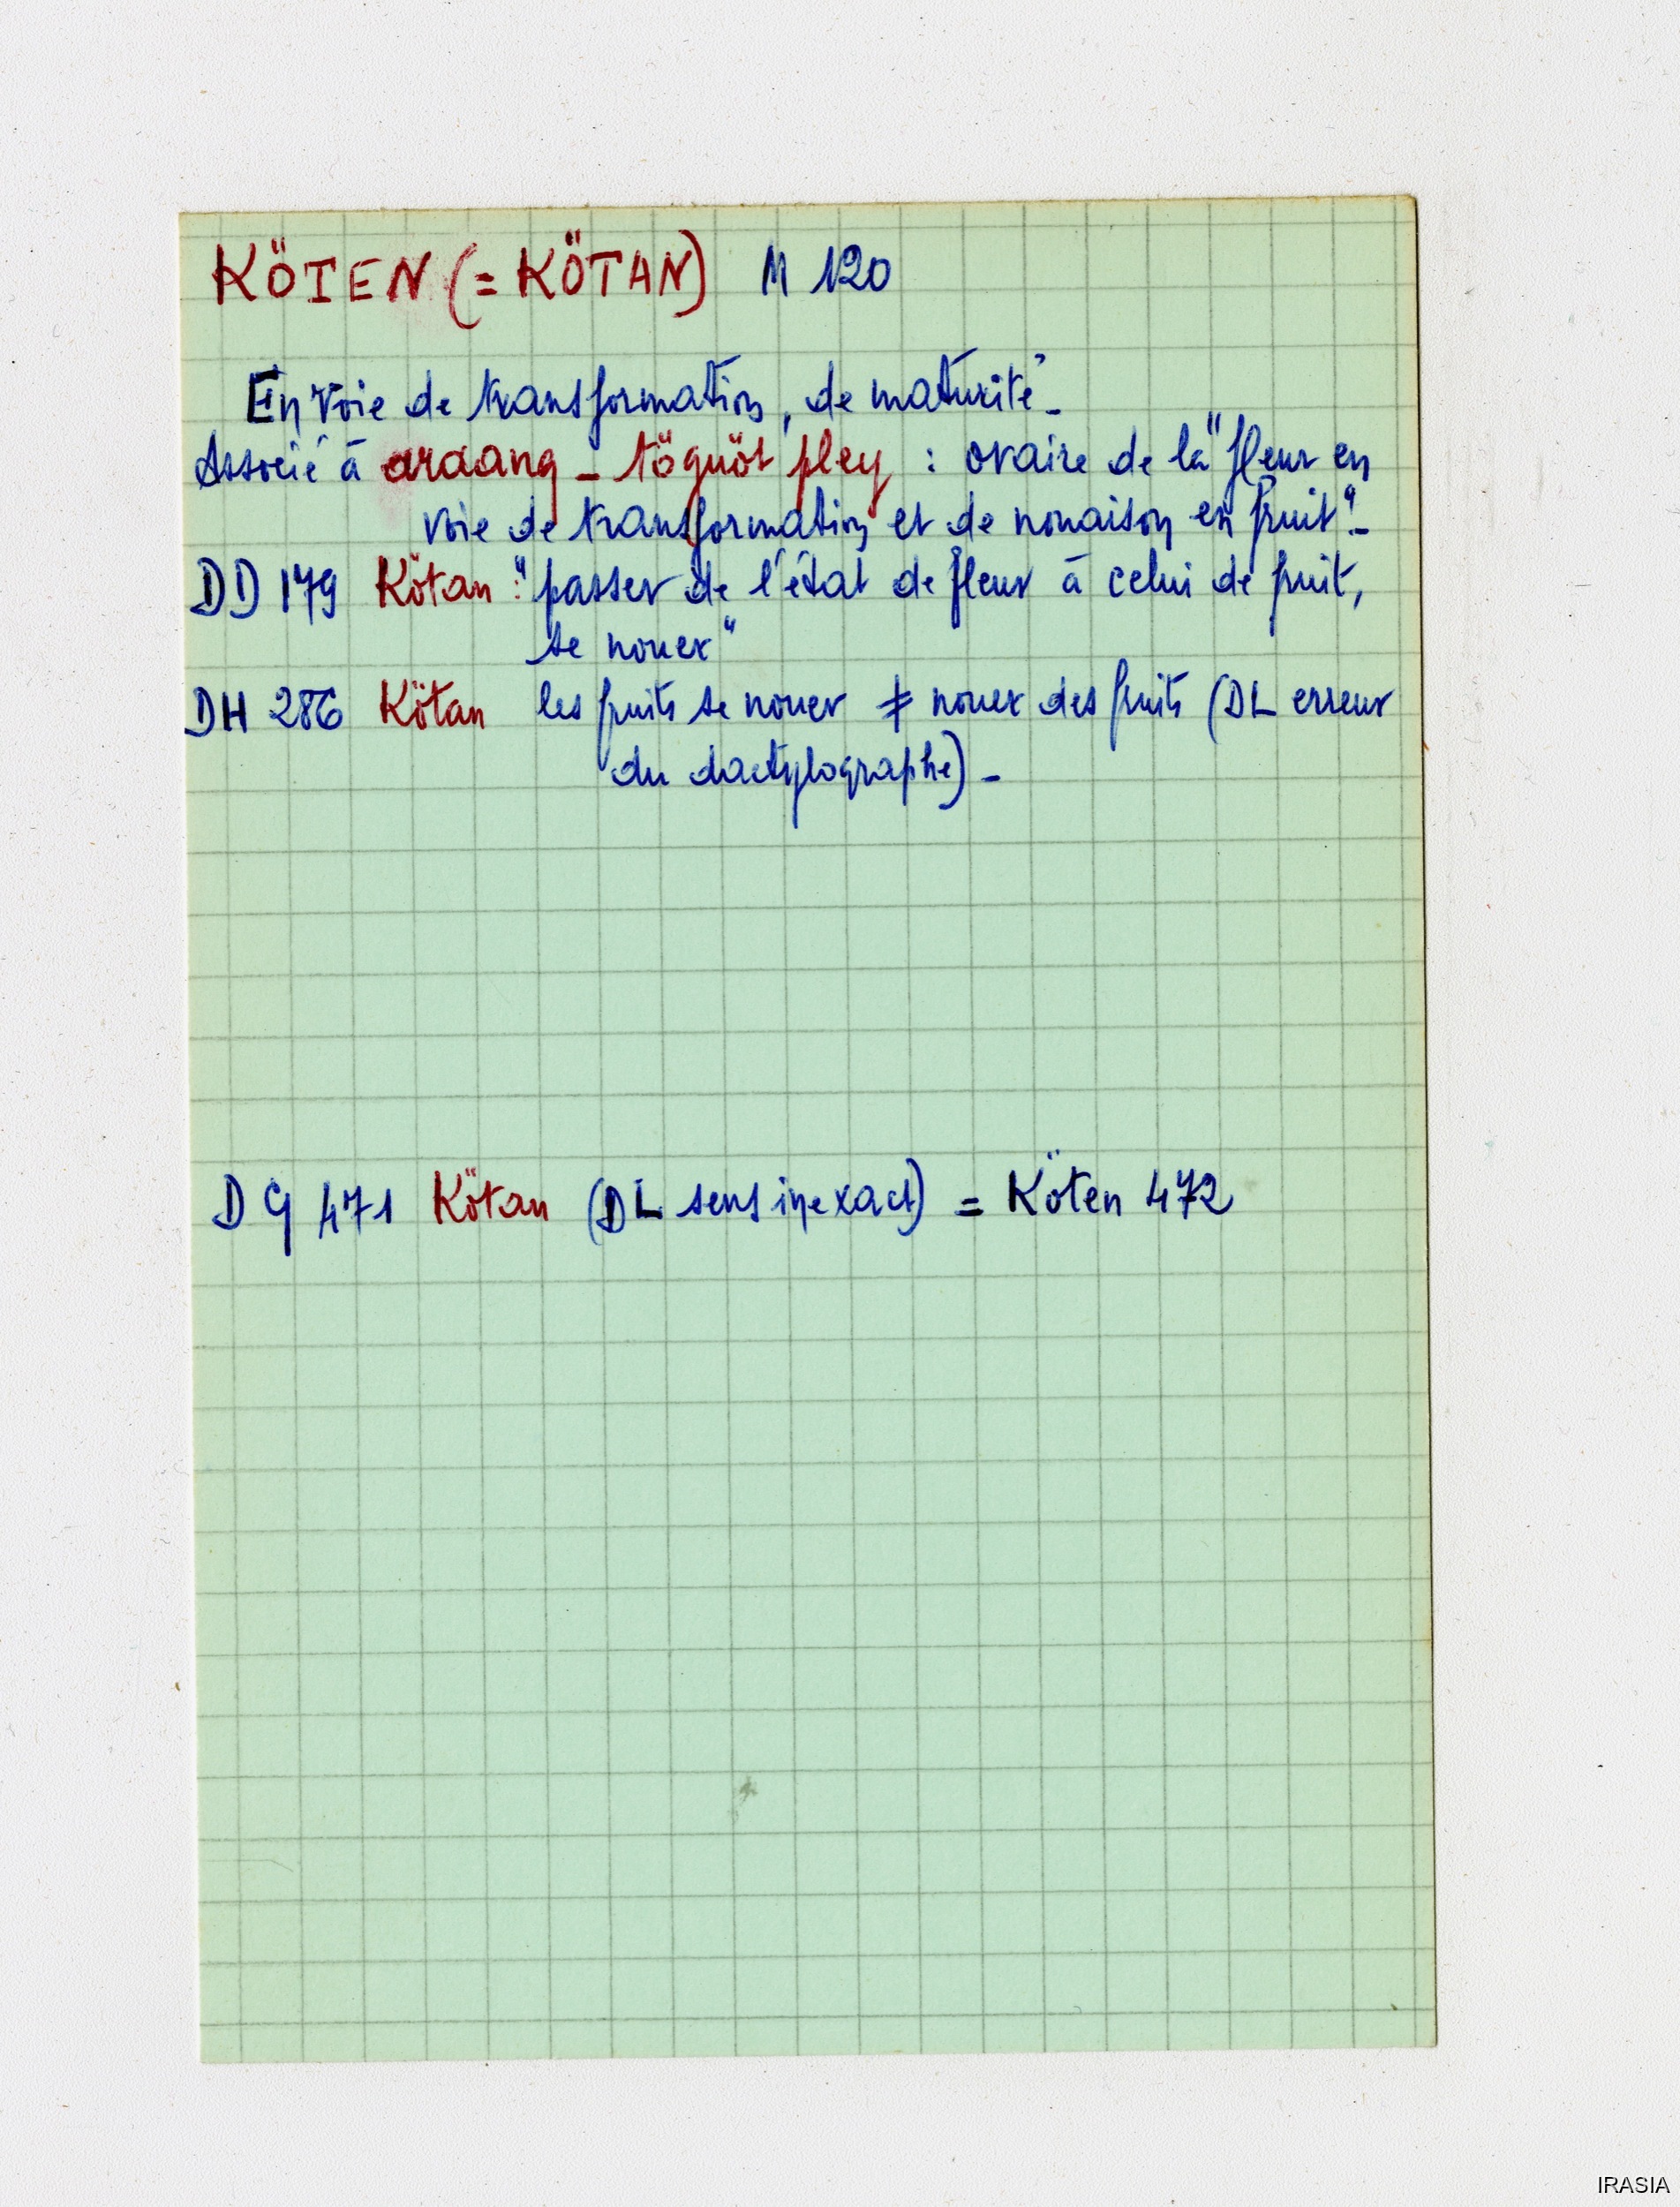 KÖTEN (= KÖTAN) M 120
En voie de transformation, de maturité -
Associé à araang - töguöt pley : ovaire de la "fleur en
voie de transformation et de nouaison en fruit". -
DD 179 Kötan : "passer de l'état de fleur à celui de fruit,
se nouer"
DH 286 Kötan les fruits se nouer ≠ nouer des fruits (DL erreur
du dactylographe) -
DG 471 Kötan (DL sens inexact) = Köten 472
IRASIA